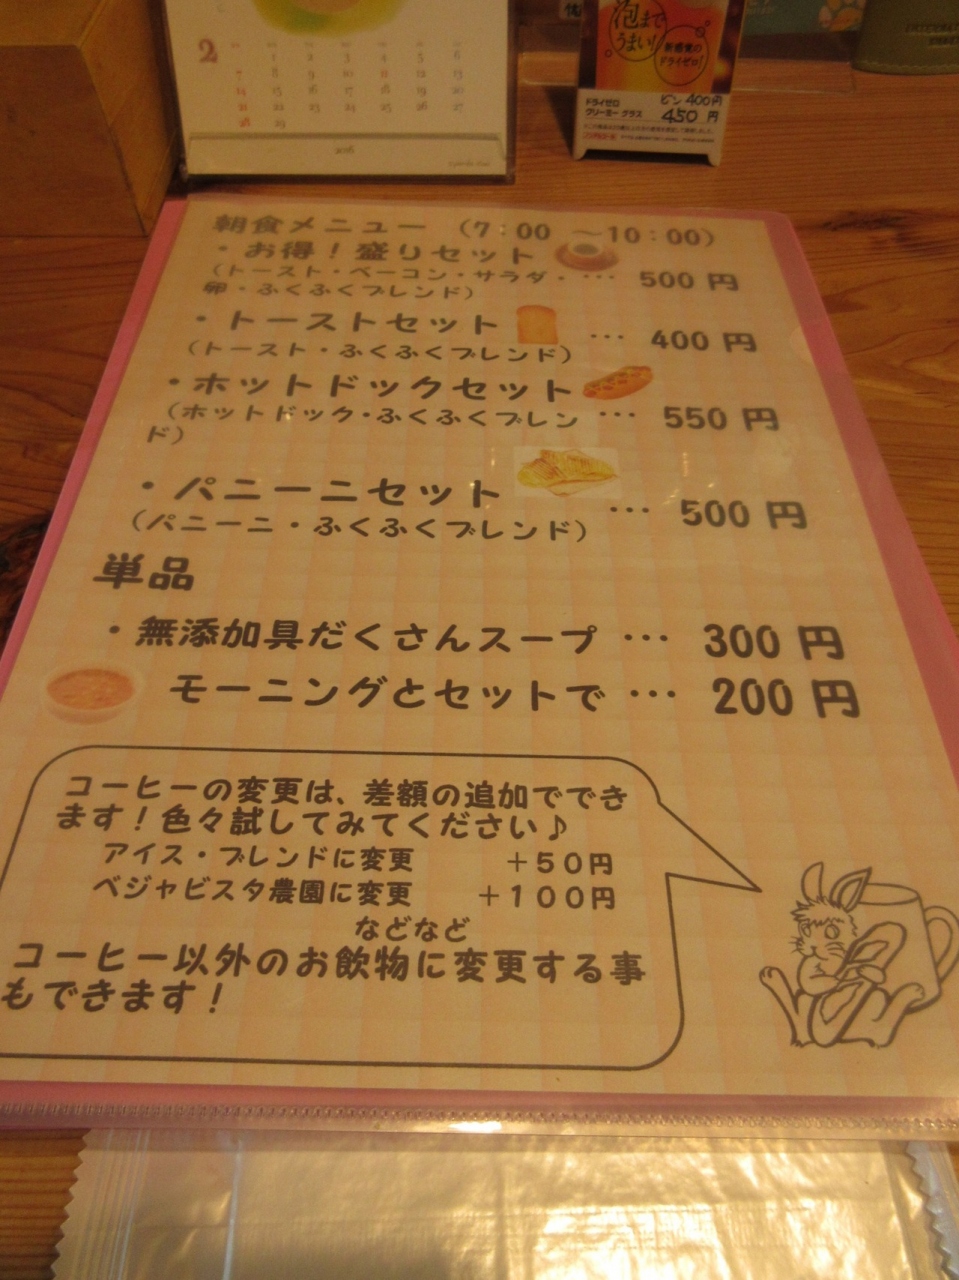 2
1 2 3 4 5 6
7 8 9 10 11 12 13
14 15 16 17 18 19 20
21 22 23 24 25 26 27
28 29
2016
泡まで
うまい!
新感覚の
ドライゼロ!
ドライゼロ ビン 400円
クリーミーグラス 450円
朝食メニュー (7:00 ~10:00)
・お得!盛りセット
(トースト・ベーコン・サラダ・ … 500円
卵・ふくふくブレンド)
・トーストセット … 400円
(トースト・ふくふくブレンド)
・ホットドックセット
(ホットドック・ふくふくブレン … 550円
ド)
・パニーニセット … 500円
(パニーニ・ふくふくブレンド)
単品
・無添加具だくさんスープ … 300円
モーニングとセットで … 200円
コーヒーの変更は、差額の追加ででき
ます!色々試してみてください♪
アイス・ブレンドに変更 +50円
ベジャビスタ農園に変更 +100円
などなど
コーヒー以外のお飲物に変更する事
もできます!